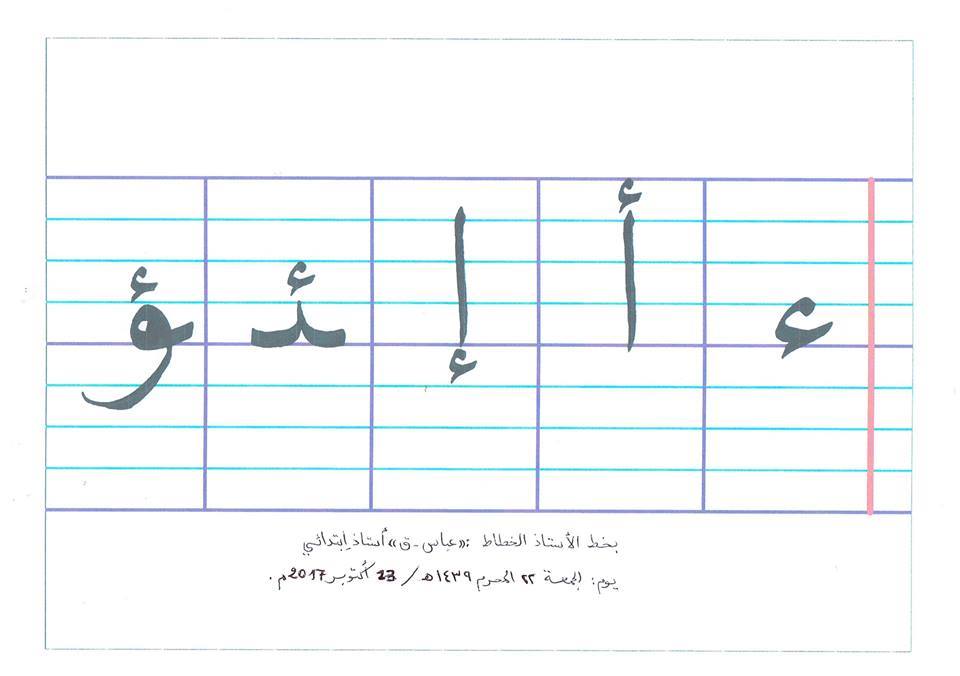 ء أ إ ئـ ؤ
بخط الأستاذ الخطاط :«عباس - ق» أستاذ إبتدائي
يوم: الجمعة ٢٢ المحرم ١٤٣٩هـ / 13 أكتوبر 2017م.